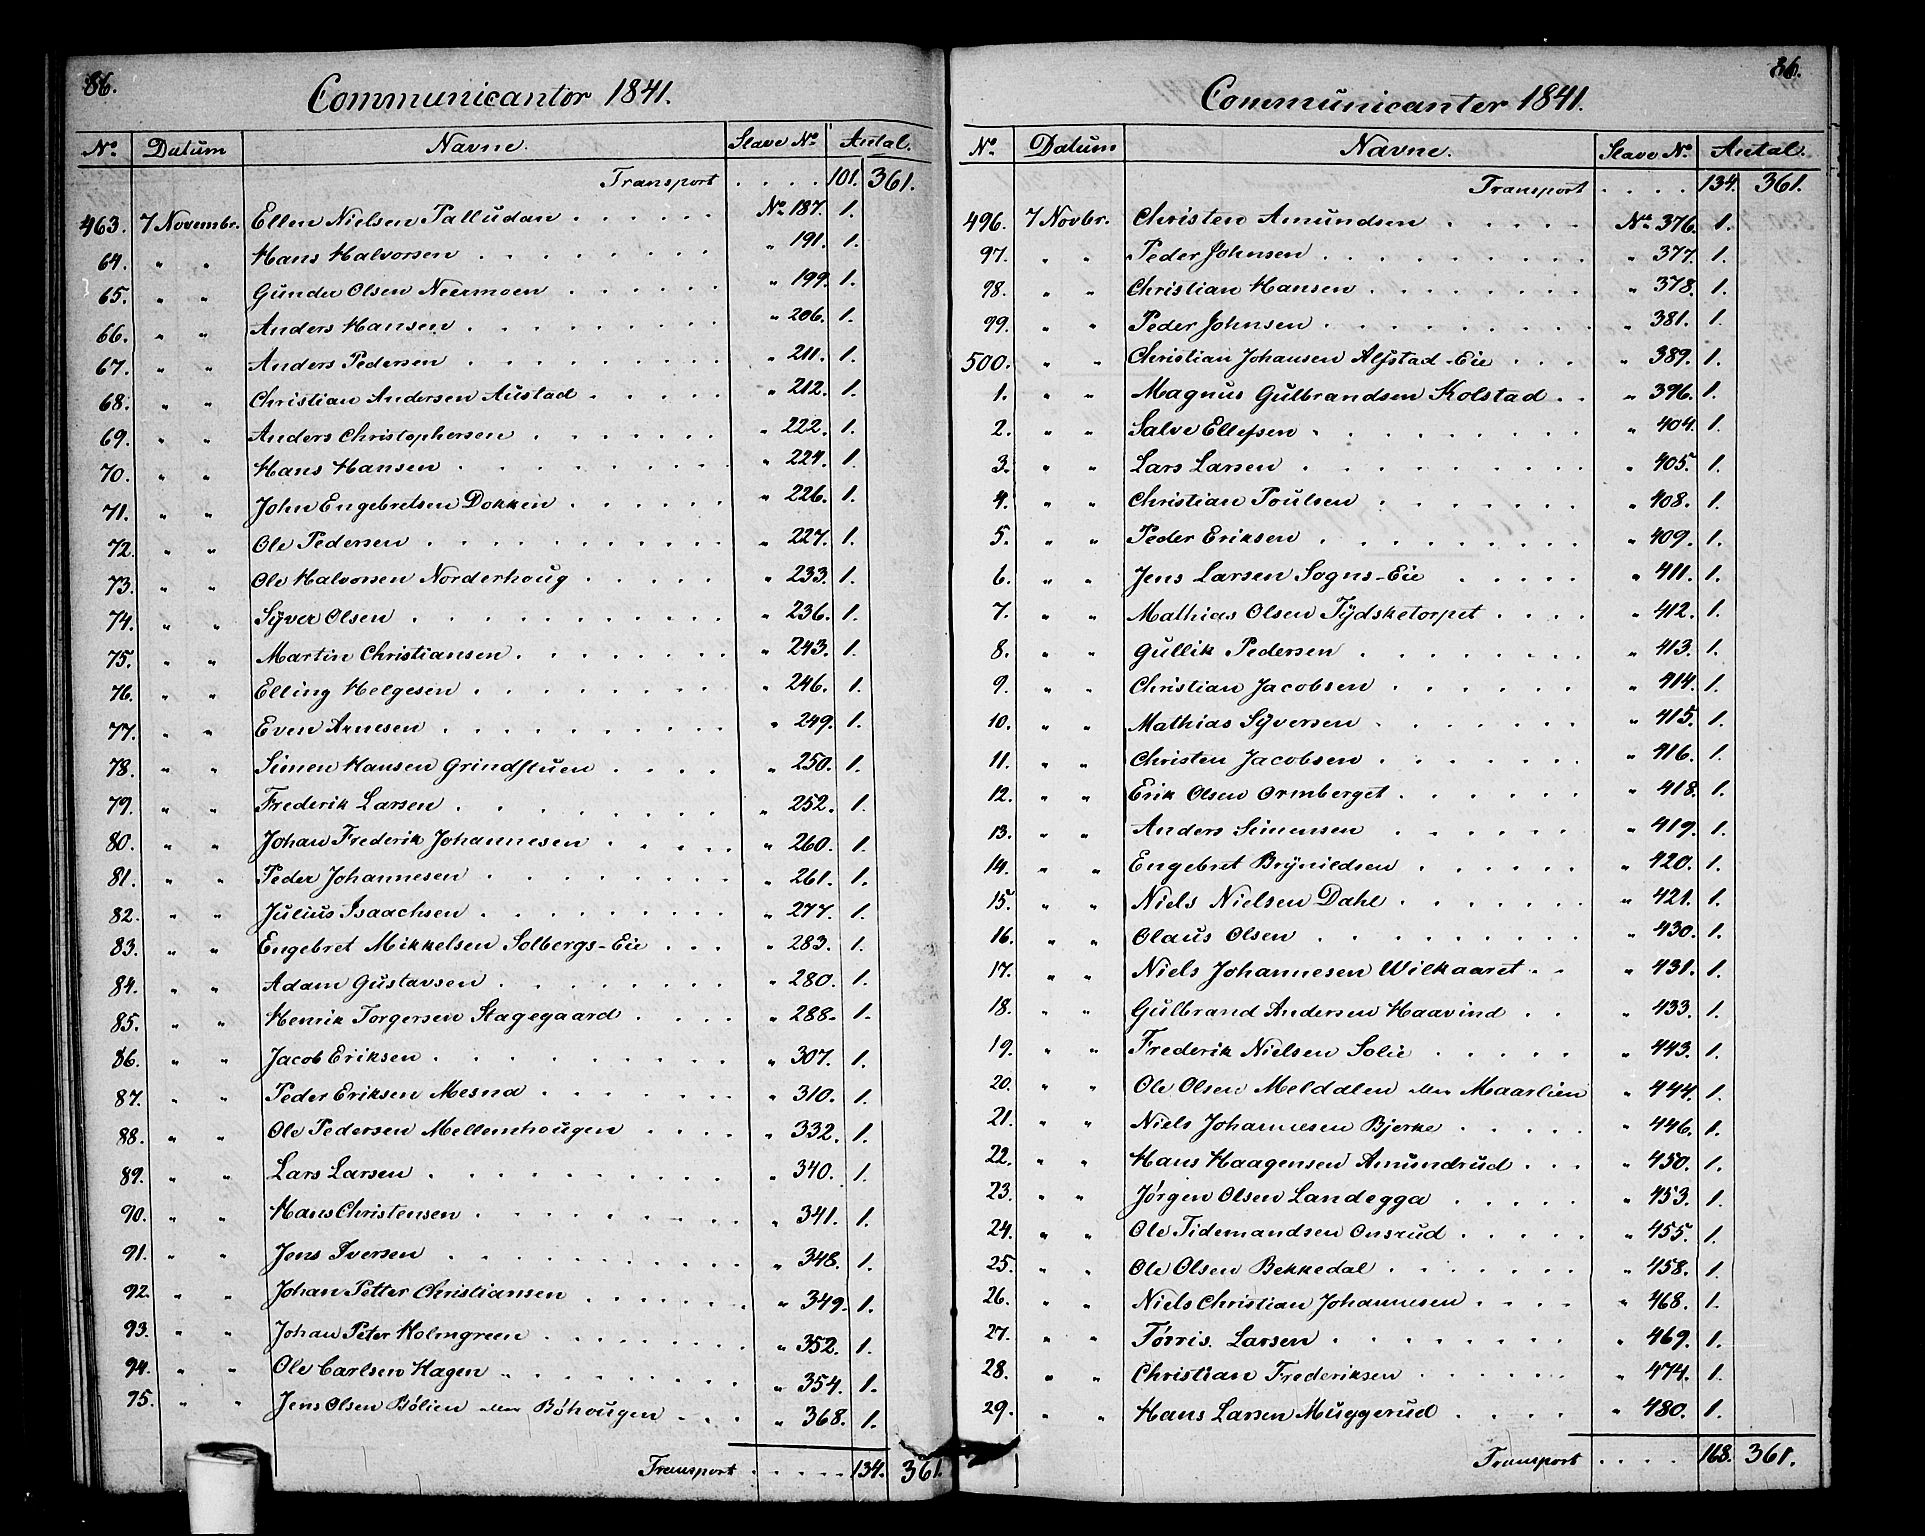 86.
Communicantor 1841.
No. Datum Navne. Slave No. Antal.
Transport . . . . 101. 361.
463. 7 Novembr. Ellen Nielsen Palludan . . . . . . No. 187. 1.
64. " " Hans Halvorsen . . . . . . . . " 191. 1.
65. " " Gunder Olsen Neermoen . . . . . . " 199. 1.
66. " " Anders Hansen . . . . . . . . " 206. 1.
67. " " Anders Pedersen . . . . . . . . " 211. 1.
68. " " Christian Andersen Austad . . . . . " 212. 1.
69. " " Anders Christophersen . . . . . . " 222. 1.
70. " " Hans Hansen . . . . . . . . " 224. 1.
71. " " John Engebretsen Dokken . . . . . . " 226. 1.
72. " " Ole Pedersen . . . . . . . . . " 227. 1.
73. " " Ole Halvorsen Norderhoug . . . . . " 233. 1.
74. " " Syver Olsen . . . . . . . . . " 236. 1.
75. " " Martin Christiansen . . . . . . . " 243. 1.
76. " " Elling Helgesen . . . . . . . . " 246. 1.
77. " " Even Arnesen . . . . . . . . " 249. 1.
78. " " Simen Hansen Grindstuen . . . . " 250. 1.
79. " " Frederik Larsen . . . . . . . " 252. 1.
80. " " Johan Frederik Johannesen . . . . . " 260. 1.
81. " " Peder Johannesen . . . . . . . " 261. 1.
82. " " Julius Isaachsen . . . . . . . . " 277. 1.
83. " " Engebret Mikkelsen Solbergs-Eie . . . " 283. 1.
84. " " Adam Gustavsen . . . . . . . " 280. 1.
85. " " Henrik Torgersen Stagegaard . . . . " 288. 1.
86. " " Jacob Eriksen . . . . . . . . " 307. 1.
87. " " Peder Eriksen Mesna . . . . . . " 310. 1.
88. " " Ole Pedersen Mellemhougen . . . . " 332. 1.
89. " " Lars Larsen . . . . . . . . " 340. 1.
90. " " Hans Christensen . . . . . . . " 341. 1.
91. " " Jens Iversen . . . . . . . . " 348. 1.
92. " " Johan Petter Christiansen . . . . . " 349. 1.
93. " " Johan Peter Holmgreen . . . . . . " 352. 1.
94. " " Ole Carlsen Hagen . . . . . . . " 354. 1.
75. " " Jens Olsen Bølien eller Bøhougen . . . " 368. 1.
Transport . . . . . 134. 361.
86.
Communicanter 1841.
No. Datum Navne. Slave No. Antal.
Transport . . . . 134. 361.
496. 7 Novbr. Christen Amundsen . . . . . No. 376. 1.
97. " " Peder Johnsen . . . . . . . . " 377. 1.
98. " " Christian Hansen . . . . . . . " 378. 1.
99. " " Peder Johnsen . . . . . . . . " 381. 1.
500. " " Christian Johansen Alfstad-Eie . . . " 389. 1.
1. " " Magnus Gulbrandsen Kolstad . . " 396. 1.
2. " " Salve Ellefsen . . . . . . . . " 404. 1.
3. " " Lars Larsen . . . . . . . . " 405. 1.
4. " " Christian Poulsen . . . . . . . " 408. 1.
5. " " Peder Eriksen . . . . . . . . " 409. 1.
6. " " Jens Larsen Sogns-Eie . . . . . " 411. 1.
7. " " Mathias Olsen Tydsketorpet . . . . " 412. 1.
8. " " Gullik Pedersen . . . . . . . " 413. 1.
9. " " Christian Jacobsen . . . . . . " 414. 1.
10. " " Mathias Syversen . . . . . . . " 415. 1.
11. " " Christen Jacobsen . . . . . . . " 416. 1.
12. " " Erik Olsen Ormberget . . . . . . " 418. 1.
13. " " Anders Simensen . . . . . . " 419. 1.
14. " " Engebret Brynildsen . . . . . " 420. 1.
15. " " Niels Nielsen Dahl . . . . . . . " 421. 1.
16. " " Olaus Olsen . . . . . . . . " 430. 1.
17. " " Niels Johannesen Wilkaaret . . " 431. 1.
18. " " Gulbrand Andersen Haavind . . " 433. 1.
19. " " Frederik Nielsen Solie . . . . . " 443. 1.
20. " " Ole Olsen Melddlen eller Maarlien " 444. 1.
21. " " Niels Johannesen Bjerke . . . . . " 446. 1.
22. " " Hans Haagensen Amundrud . . . " 450. 1.
23. " " Jørgen Olsen Landegga . . . . . " 453. 1.
24. " " Ole Tidemandsen Onsrud . . . . . " 455. 1.
25. " " Ole Olsen Bekkedal . . . . . . . " 458. 1.
26. " " Niels Christian Johannesen . . . . " 468. 1.
27. " " Tørris. Larsen . . . . . . . . " 469. 1.
28. " " Christian Frederiksen . . . . . . " 474. 1.
29. " " Hans Larsen Muggerud . . . . " 480. 1.
Transport . . . . 168. 361.